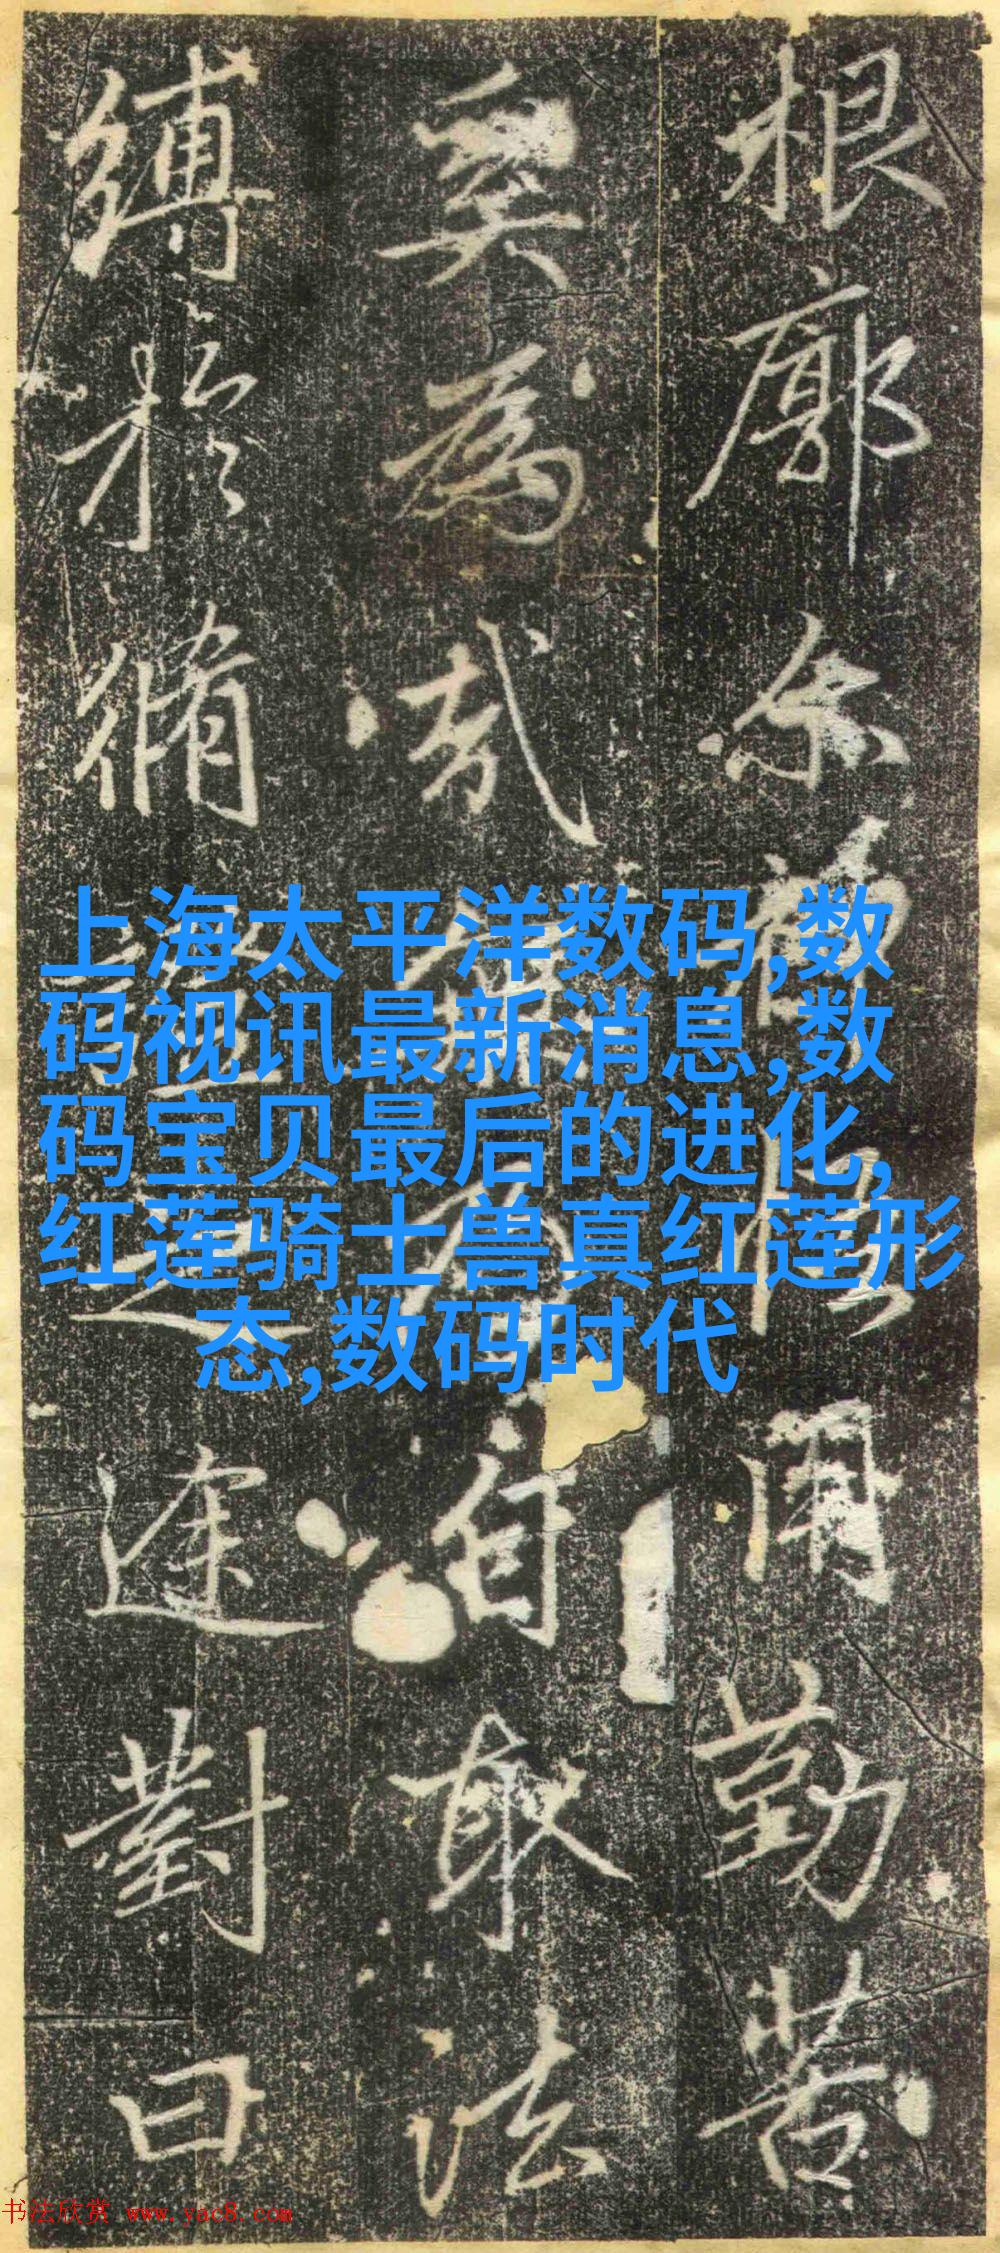 根廓尔用勤苦
奚為哉自取法
縛於脩之途對曰
上海太平洋数码,数
码视讯最新消息,数
码宝贝最后的进化,
红莲骑士兽真红莲形
态,数码时代
书法欣赏 www.yac8.com